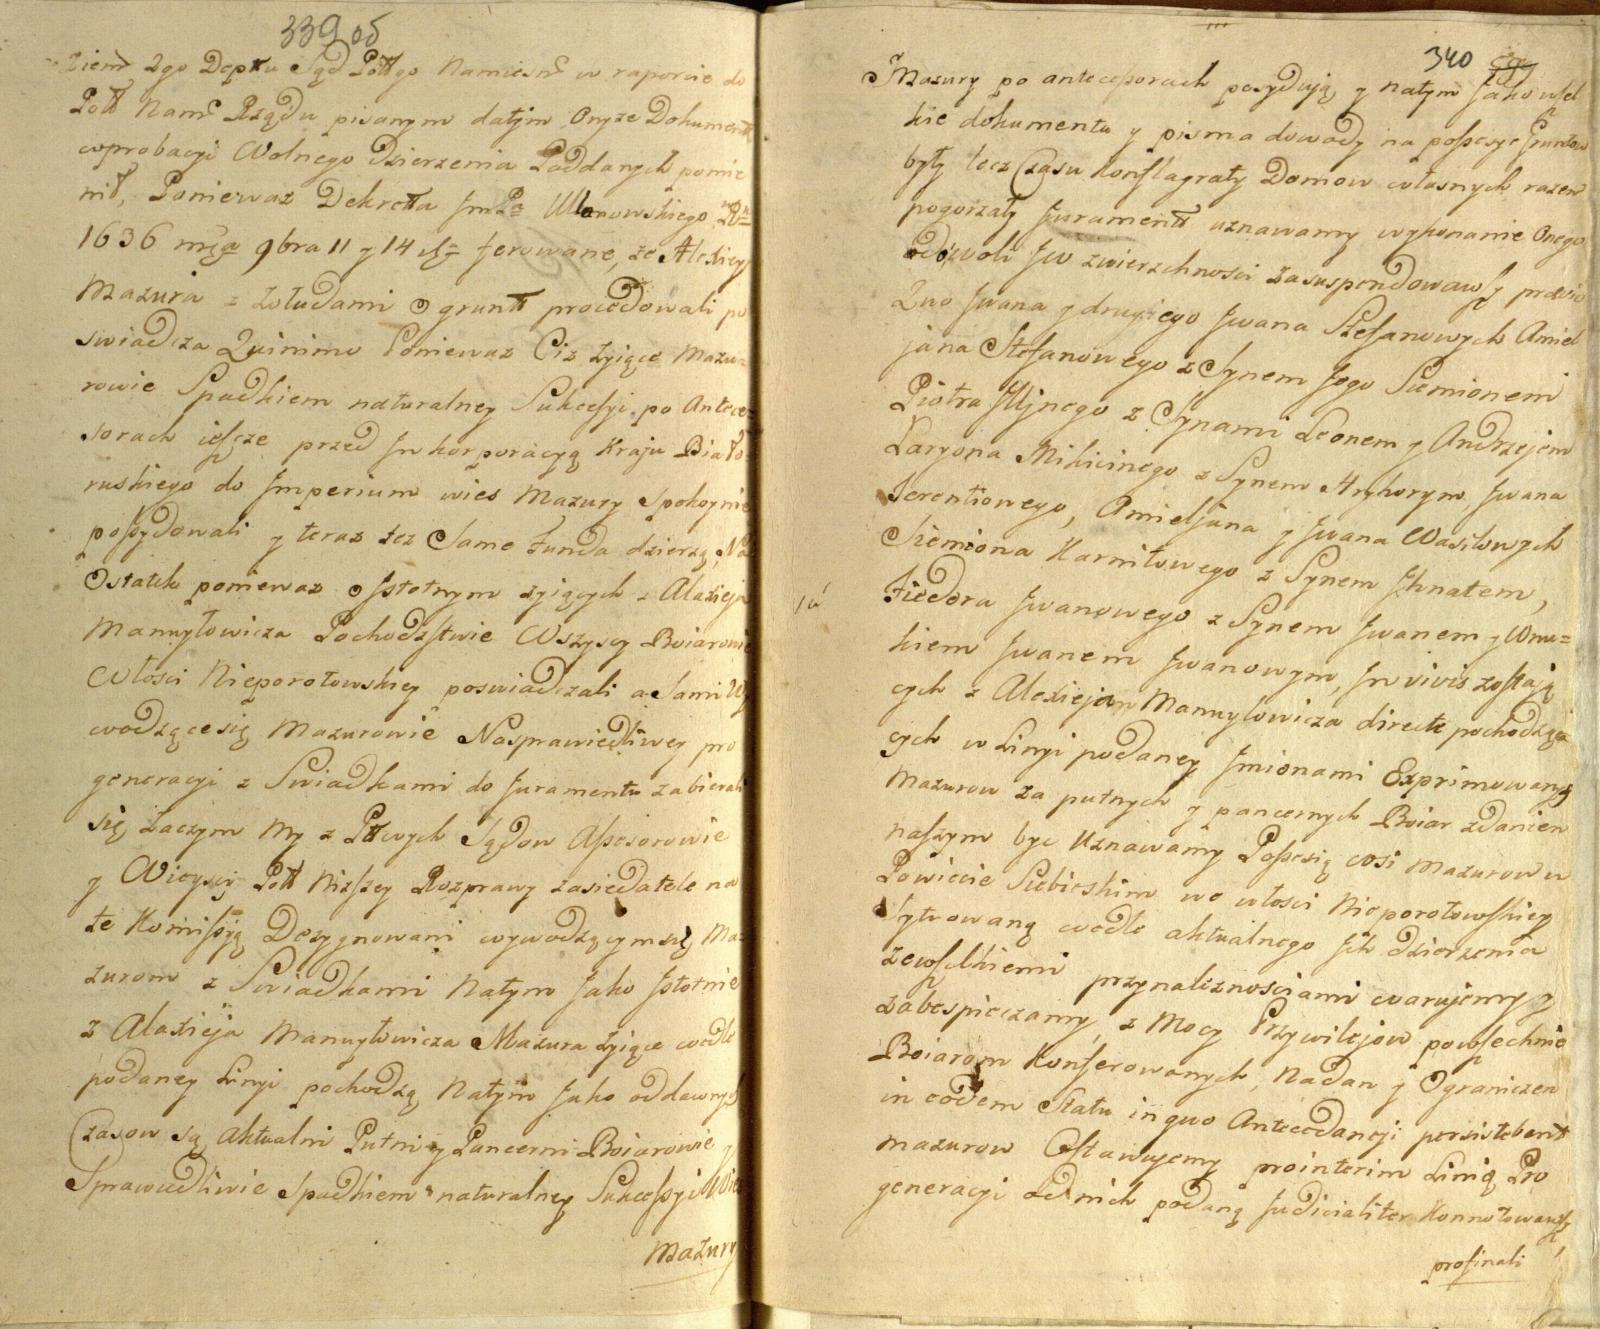 339 об
Ziem 2go Deptu Sąd Pottgo Namiesn w raporcie do
Pott Nam Rządu pisanym datym Onyże Dokument
wprobacyi Wolnego dzierzenia Poddanych pomie
nił, Poniewaz Dekretta JmPa Ulanowskiego
1636 mca 9bra 11 y 14 dla ferowane, że Alexiey
Mazura z Zoludami o grunt procedowali po
swiadcza Quinimo Poniewaz Ciz żyiące Mazu=
rowie Spadkiem naturalney Sukcessyi po Antece=
sorach ieszcze przed Jnkorporacyą Kraju Białо
ruskiego do Jmperium wies Mazury Spokoynie
possydowali y teraz tez Same Funda dzierzą, Na
Ostatek poniewaz o Jstotnym zyiących z Alaxieja
Manuyłowicza Pochodzstwie Wszyscy Boiarowie
Włosci Nieporotowskiey poswiadczali a Sami Wy
wodzące się Mazurowie Nasprawiedliwey pro
generacyi z Swiadkami do Juramentu zabierali
się Zaczym My z Pttwych Sądow Assesorowie
y Wieyscy Pott Nizszey Rozprawy zasiedatele na
te Komissyą Dezygnowani wywodzącym się Ma=
zurom z Swiadkami Natym Jako Jstotnie
z Alaxieja Manuyłowicza Mazura żyiące wedle
podaney Linyi pochodzą Natym Jako oddawnych
Czasow są Aktualni Putni y Pancerni Boiarowie y
Sprawiedliwie Spadkiem naturalney Sukcessyi Wies
Mazury
340
Mazury po antecessorach possydują y natym Jako wszel
kie dokumenta y pisma dowody na possesye Gruntow
były lecz Czasu Konflagraty Domow własnych razem
pogorzały Jurament uznawamy wykonanie Onego
odzwoli Jw zwierzchnosci zasuspendowawszy prawio
Quo Jwana y drugiego Jwana Stefanowych Amiel
jana Stefanowego z Synem Jego Siemionem
Piotra Jljnego z Synami Leonem y Andrzejem
Laryona Mikicinego z Synem Hryhorym, Jwana
Terentiowego, Amieljana y Jwana Wasilowych
Siemiona Karniłowego z Synem Jhnatem,
Fiedora Jwanowego z Synem Jwanem y Wnu=
kiem Jwanem Jwanowym, Jn vivis zostają
cych z Alexieja Manuyłowicza directe pochodzą
cych w Linyi podaney Jmionami Exprimowanych
Mazurow za putnych y pancernych Boiar zdaniem
naszym byc Uznawamy Possesią wsi Mazurow w
Powiecie Siebieskim we włosci Nieporotowskiey
Sytuowaną wedle aktualnego Jch dzierzenia
zewszelkiemi przynaleznosciami warujemy y
zabespieczamy, z Mocy Przywilejow powszechnie
Boiarom Konferowanych, Nadan y Ograniczen
in eodem Statu in quo Antecedancji persistebant
Mazurow Ostawujemy prointerim Linią Pro
generacyi od nich podaną Judicialiter Konnotowawszy,
profinali